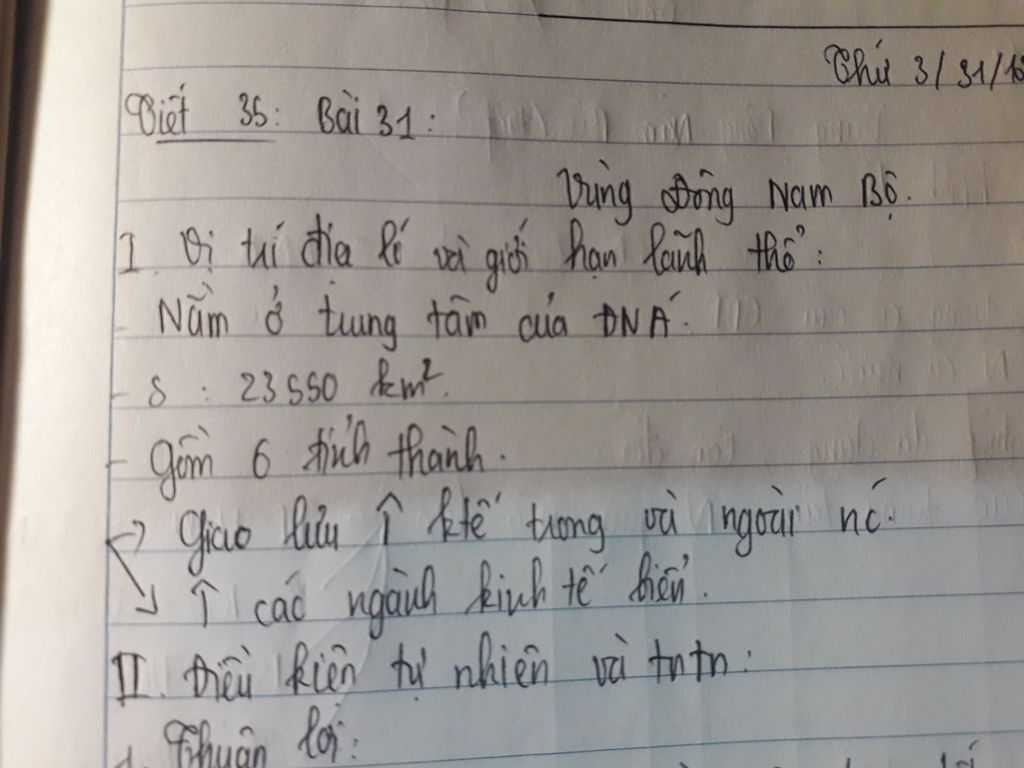 Thứ 3/31/12
Tiết 35: Bài 31:
Vùng Đông Nam Bộ.
I. Vị trí địa lí và giới hạn lãnh thổ:
- Nằm ở trung tâm của ĐNÁ.
- S : 23 550 km².
- Gồm 6 tỉnh thành.
→ Giao lưu ↑ ktế trong và ngoài nc.
↘ ↑ các ngành kinh tế biển.
II. Điều kiện tự nhiên và tntn:
1. Thuận lợi: